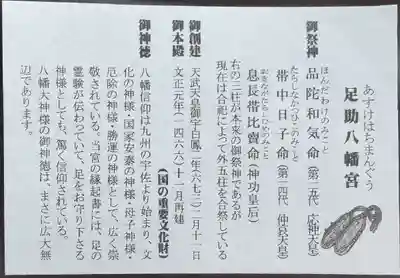 あすけはちまんぐう
足助八幡宮
御祭神
ほんだわけのみこと
品陀和気命（第十五代　応神天皇）
たらしなかつひこのみこと
帯中日子命（第十四代　仲哀天皇）
おきながたらしひめのみこと
息長帯比賣命（神功皇后）
右の三柱が本来の御祭神であるが
現在は合祀によって外五柱を合祭している
御創建　天武天皇御宇白鳳二年（六七三）二月十一日
御本殿　文正元年（一四六六）十一月再建
（国の重要文化財）
御神徳　八幡信仰は九州の宇佐より始まり、文
化の神様・国家安泰の神様・母子神様・
厄除の神様・勝運の神様として、広く崇
敬されている。当宮の縁起書には、足の
霊験が伝わっていて、足をお守り下さる
神様としても、篤く信仰されている。
八幡大神様の御神徳は、まさに広大無
辺であります。